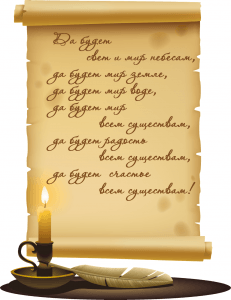 Да будет
свет и мир небесам,
да будет мир земле,
да будет мир воде,
да будет мир
всем существам,
да будет радость
всем существам,
да будет счастье
всем существам!